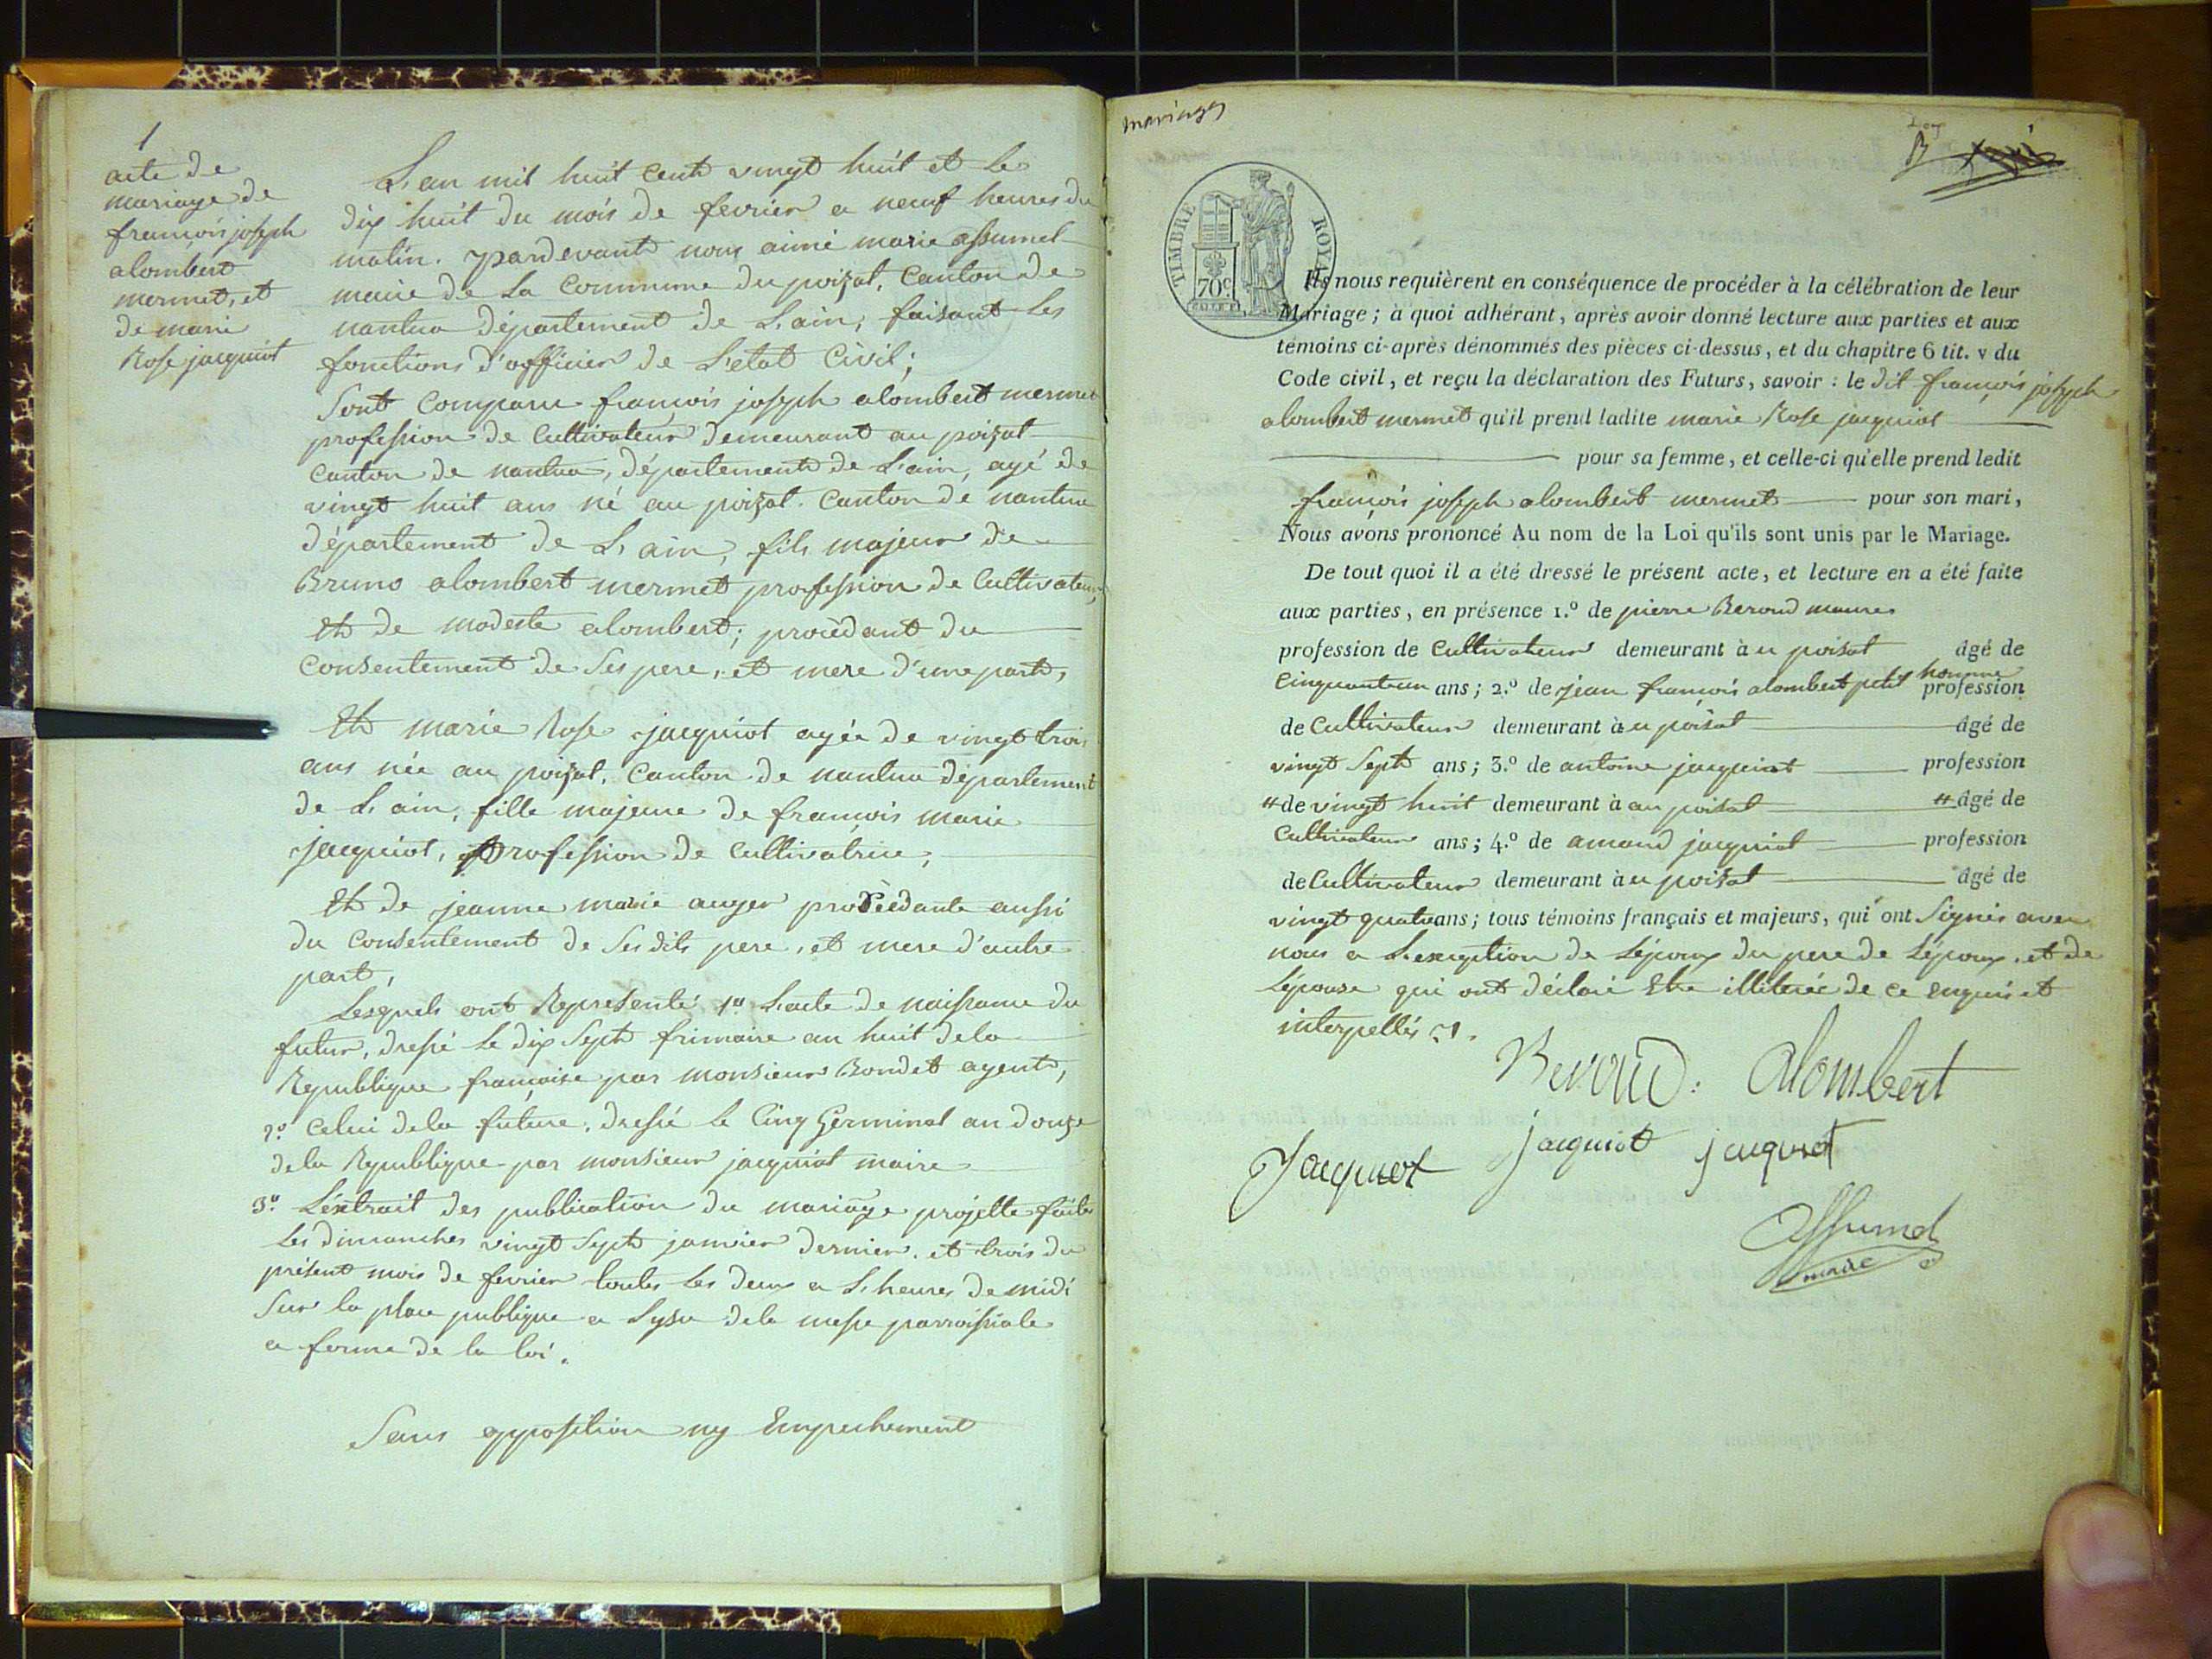 1
acte de
mariage de
françois joseph
alombert
mermet, et
de marie
Rose jacquiot
L'an mil huit cent vingt huit et le
dix huit du mois de fevrier a neuf heures du
matin. pardevant nous aimé marie assumel
maire de la Commune du poizat, Canton de
nantua département de L'ain, faisant les
fonctions d'officier de L'etat Civil;
Sont Comparu françois joseph alombert mermet
profession de Cultivateur demeurant au poizat
Canton de nantua, département de L'ain, agé de
vingt huit ans né au poizat. Canton de nantua
département de L'ain, fils majeur de
Bruno alombert mermet profession de Cultivateur,
Et de modeste alombert; procèdant du
Consentement de Ses pere, et mere d'une part,
Et marie Rose jacquiot agée de vingt trois
ans née au poizat, Canton de nantua département
de L'ain, fille majeure de françois marie
jacquiot, profession de Cultivatrice,
Et de jeanne marie auger procèdante aussi
du Consentement de Ses dits pere, et mere d'autre
part,
Lesquels ont Representé 1º L'acte de naissance du
futur, dressé le dix Sept frimaire an huit de la
Republique française par monsieur Bondet agent,
2º Celui de la future, dressé le Cinq Germinal an douze
de la Republique par monsieur jacquiot maire
3º L'éxtrait des publication du mariage projetté faites
les dimanches vingt Sept janvier dernier, et trois du
présent mois de fevrier toutes les deux a L'heures de midi
Sur la place publique a Lysu de la messe parroissiale
a forme de la loi.
Sans opposition ny Empechement
mariages
B
TIMBRE ROYAL
70c
Ils nous requièrent en conséquence de procéder à la célébration de leur
Mariage; à quoi adhérant, après avoir donné lecture aux parties et aux
témoins ci-après dénommés des pièces ci-dessus, et du chapitre 6 tit. v du
Code civil, et reçu la déclaration des Futurs, savoir: le dit françois joseph
alombert mermet qu'il prend ladite marie Rose jacquiot
pour sa femme, et celle-ci qu'elle prend ledit
françois joseph alombert mermet pour son mari,
Nous avons prononcé Au nom de la Loi qu'ils sont unis par le Mariage.
De tout quoi il a été dressé le présent acte, et lecture en a été faite
aux parties, en présence 1.º de pierre Beroud
profession de Cultivateur demeurant à u poizat âgé de
Cinquanteun ans; 2.º de jean françois alombert petit homme profession
de Cultivateur demeurant à u poizat âgé de
vingt Sept ans; 3.º de antoine jacquiot profession
# de vingt huit demeurant à au poizat # âgé de
Cultivateur ans; 4.º de amand jacquiot profession
de Cultivateur demeurant à u poizat âgé de
vingt quatre ans; tous témoins français et majeurs, qui ont Signés avec
nous a L'exception de Lépoux du pere de Lépoux, et de
Lépouse qui ont déclaré Etre illiterée de ce enquis et
interpellés
Beroud. alombert
Jacquiot jacquiot jacquiot
assumel
maire